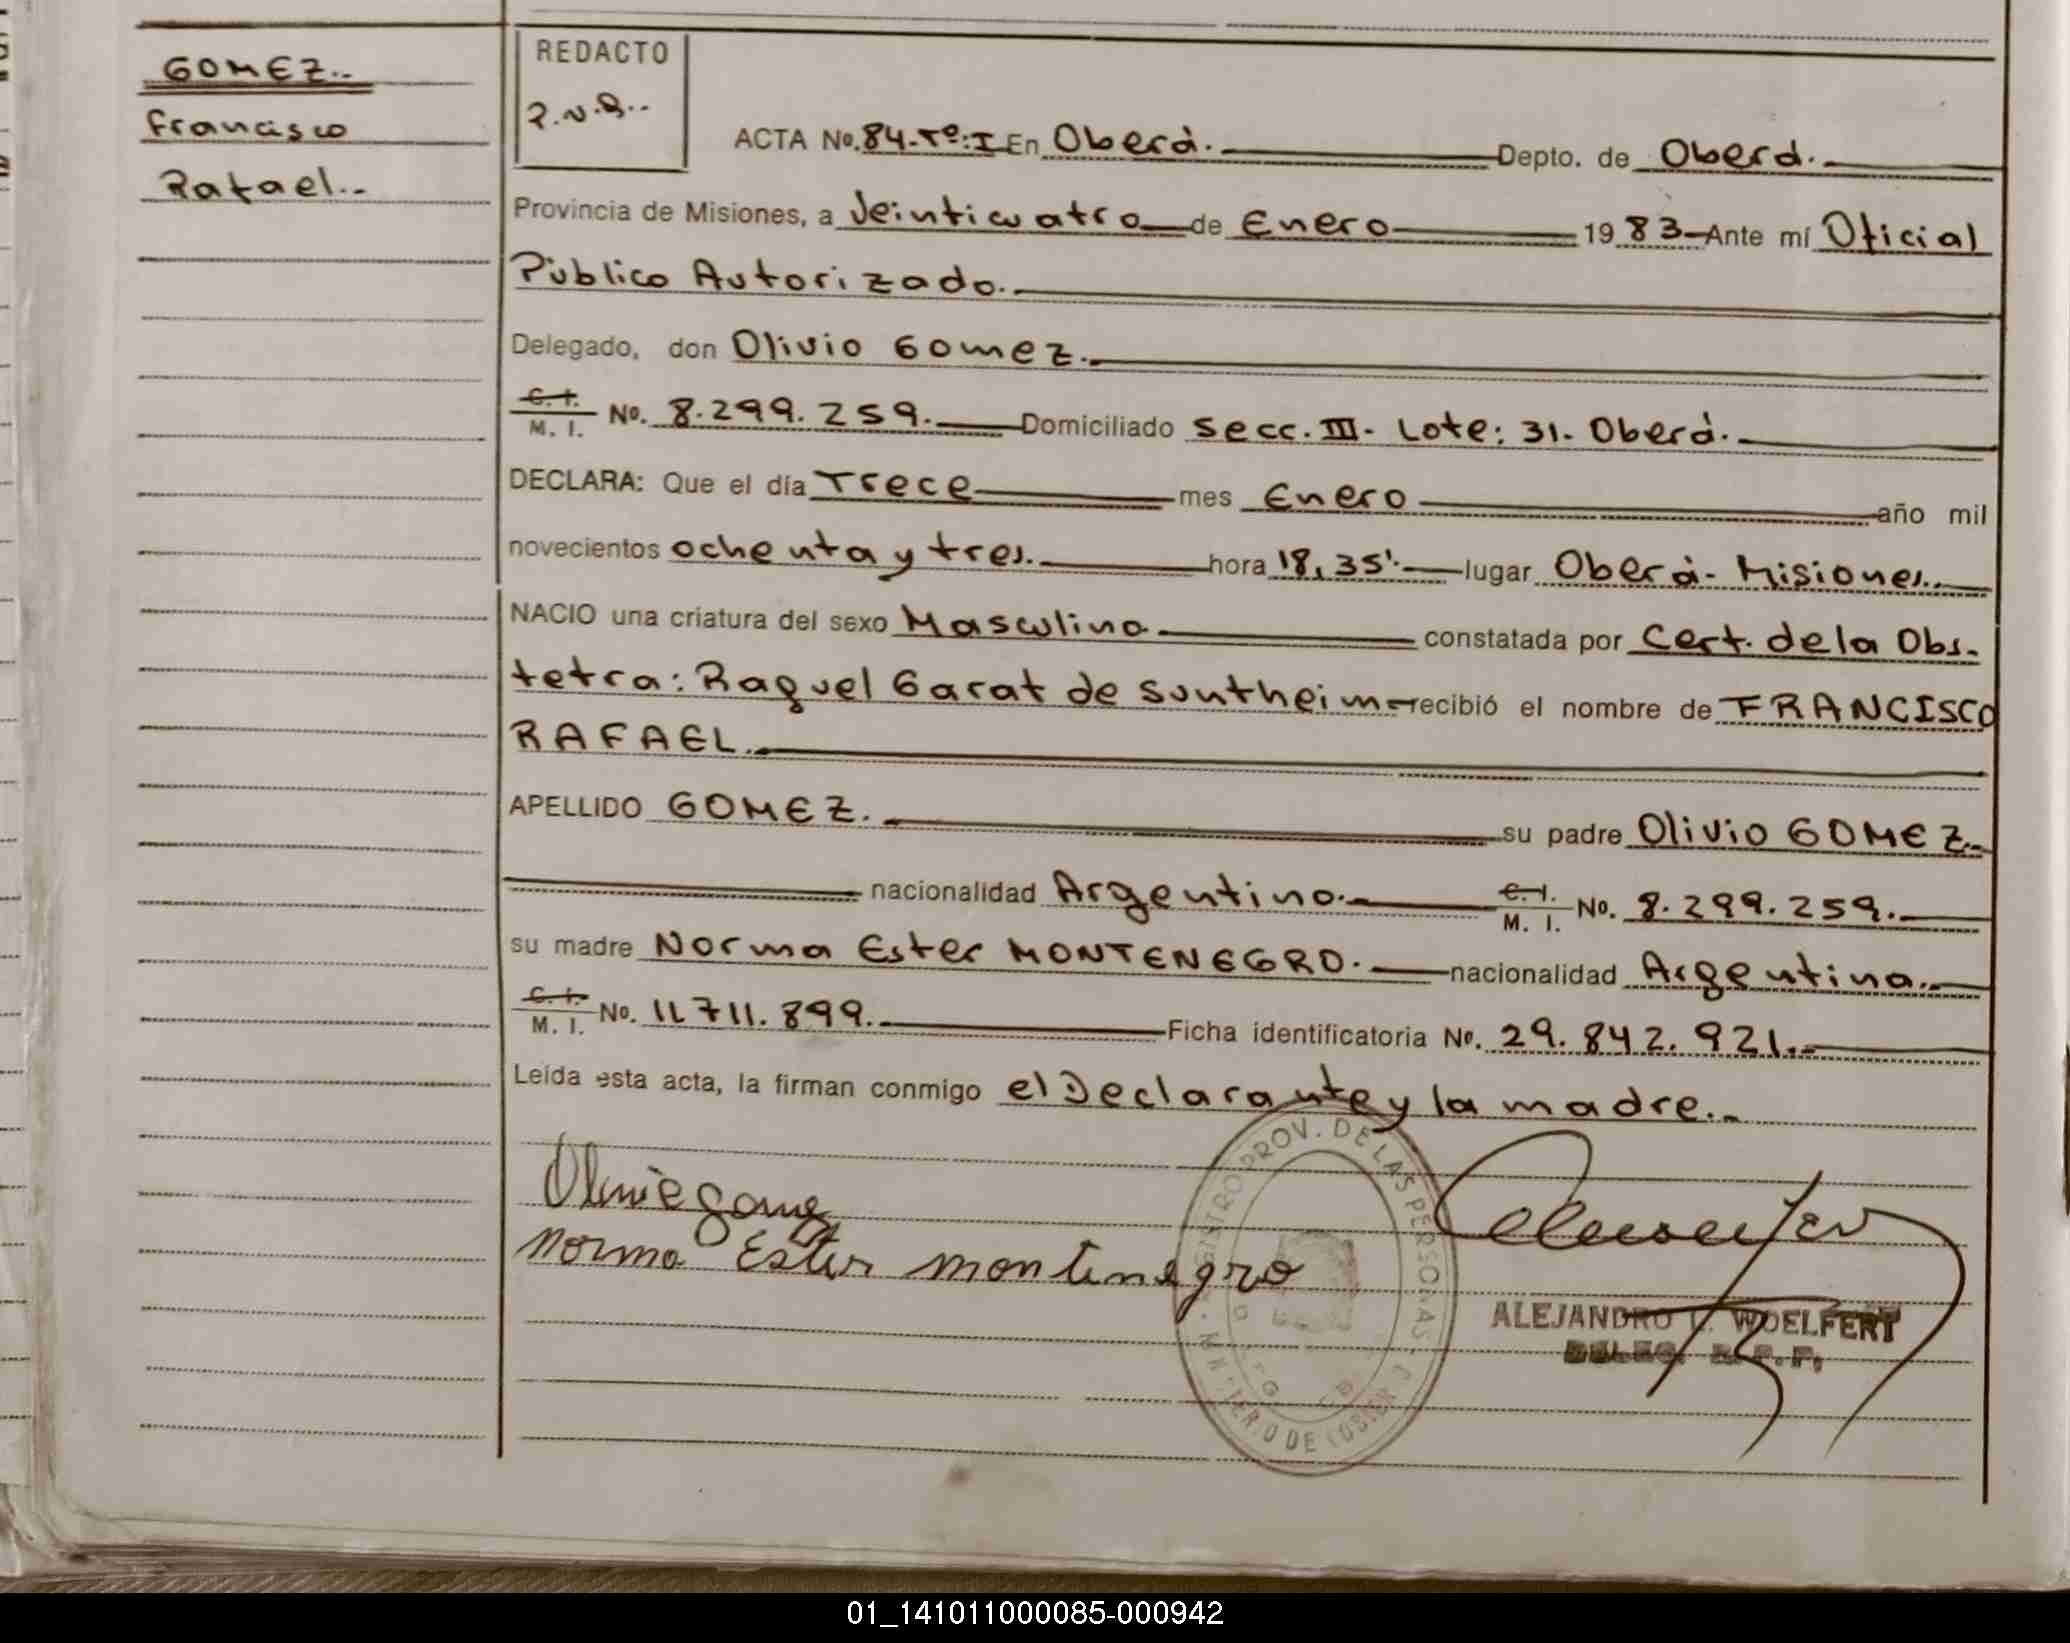 GOMEZ.-
Francisco
Rafael.-
REDACTO
ACTA No. 84-Tº:I En Oberá. Depto. de Oberá.
Provincia de Misiones, a Veinticuatro de Enero 1983 Ante mí Oficial
Público Autorizado.
Delegado, don Olivio Gomez.
C. I. / M. I. No. 8.299.259. Domiciliado Secc. III. Lote: 31. Oberá.
DECLARA: Que el día Trece mes Enero año mil
novecientos ochenta y tres. hora 18,35'. lugar Oberá- Misiones.
NACIO una criatura del sexo Masculino constatada por Cert. de la Obs-
tetra: Raquel Garat de Suntheim recibió el nombre de FRANCISCO
RAFAEL.
APELLIDO GOMEZ. su padre Olivio GOMEZ.
nacionalidad Argentino. C. I. / M. I. No. 8.299.259.
su madre Norma Ester MONTENEGRO. nacionalidad Argentina.
C. I. / M. I. No. 11.711.899. Ficha identificatoria No. 29.842.921.
Leída esta acta, la firman conmigo el Declarante y la madre.
Norma Ester montenegro
ALEJANDRO WOELFERT
01_141011000085-000942